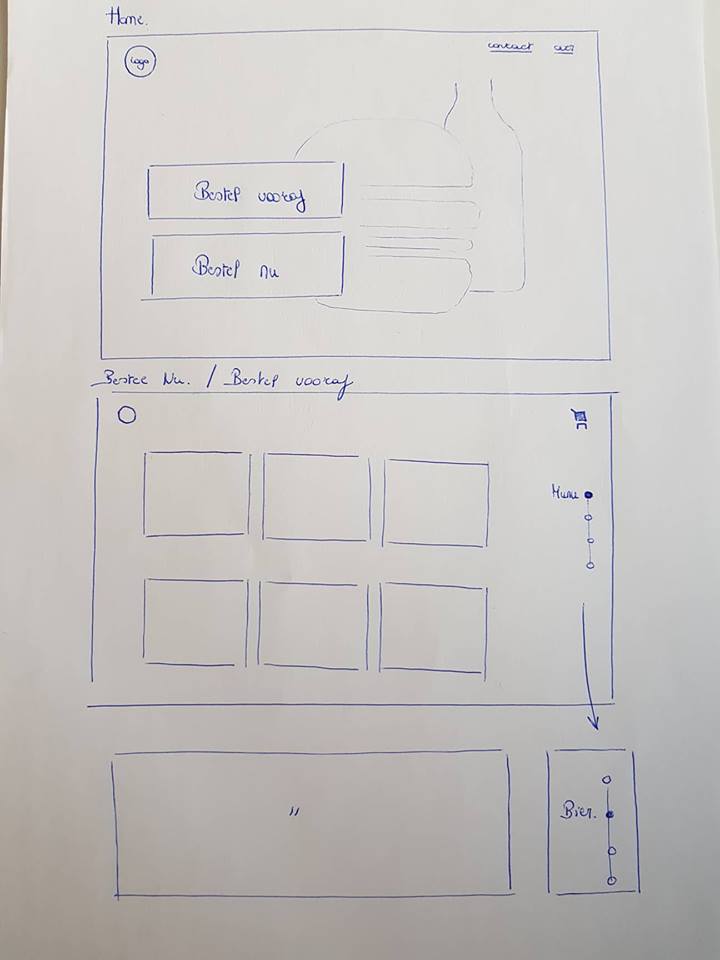 Home.
logo
contact
Bestel vooraf
Bestel nu
Bestel Nu. / Bestel vooraf
Menu
"
Bier.